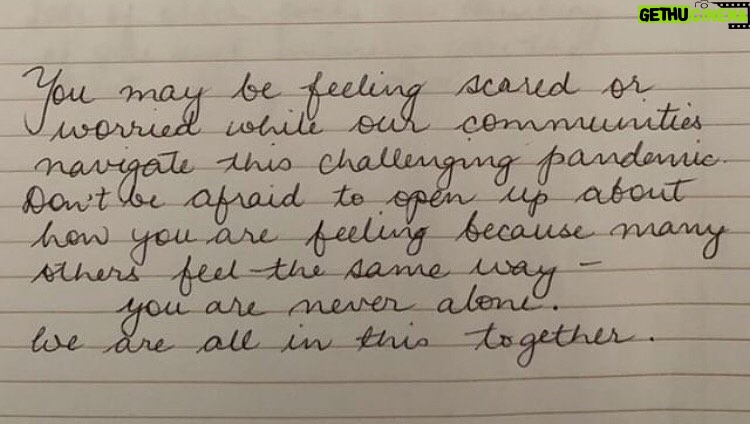 GETHU
You may be feeling scared or
worried while our communities
navigate this challenging pandemic.
Don't be afraid to open up about
how you are feeling because many
others feel the same way -
you are never alone.
We are all in this together.